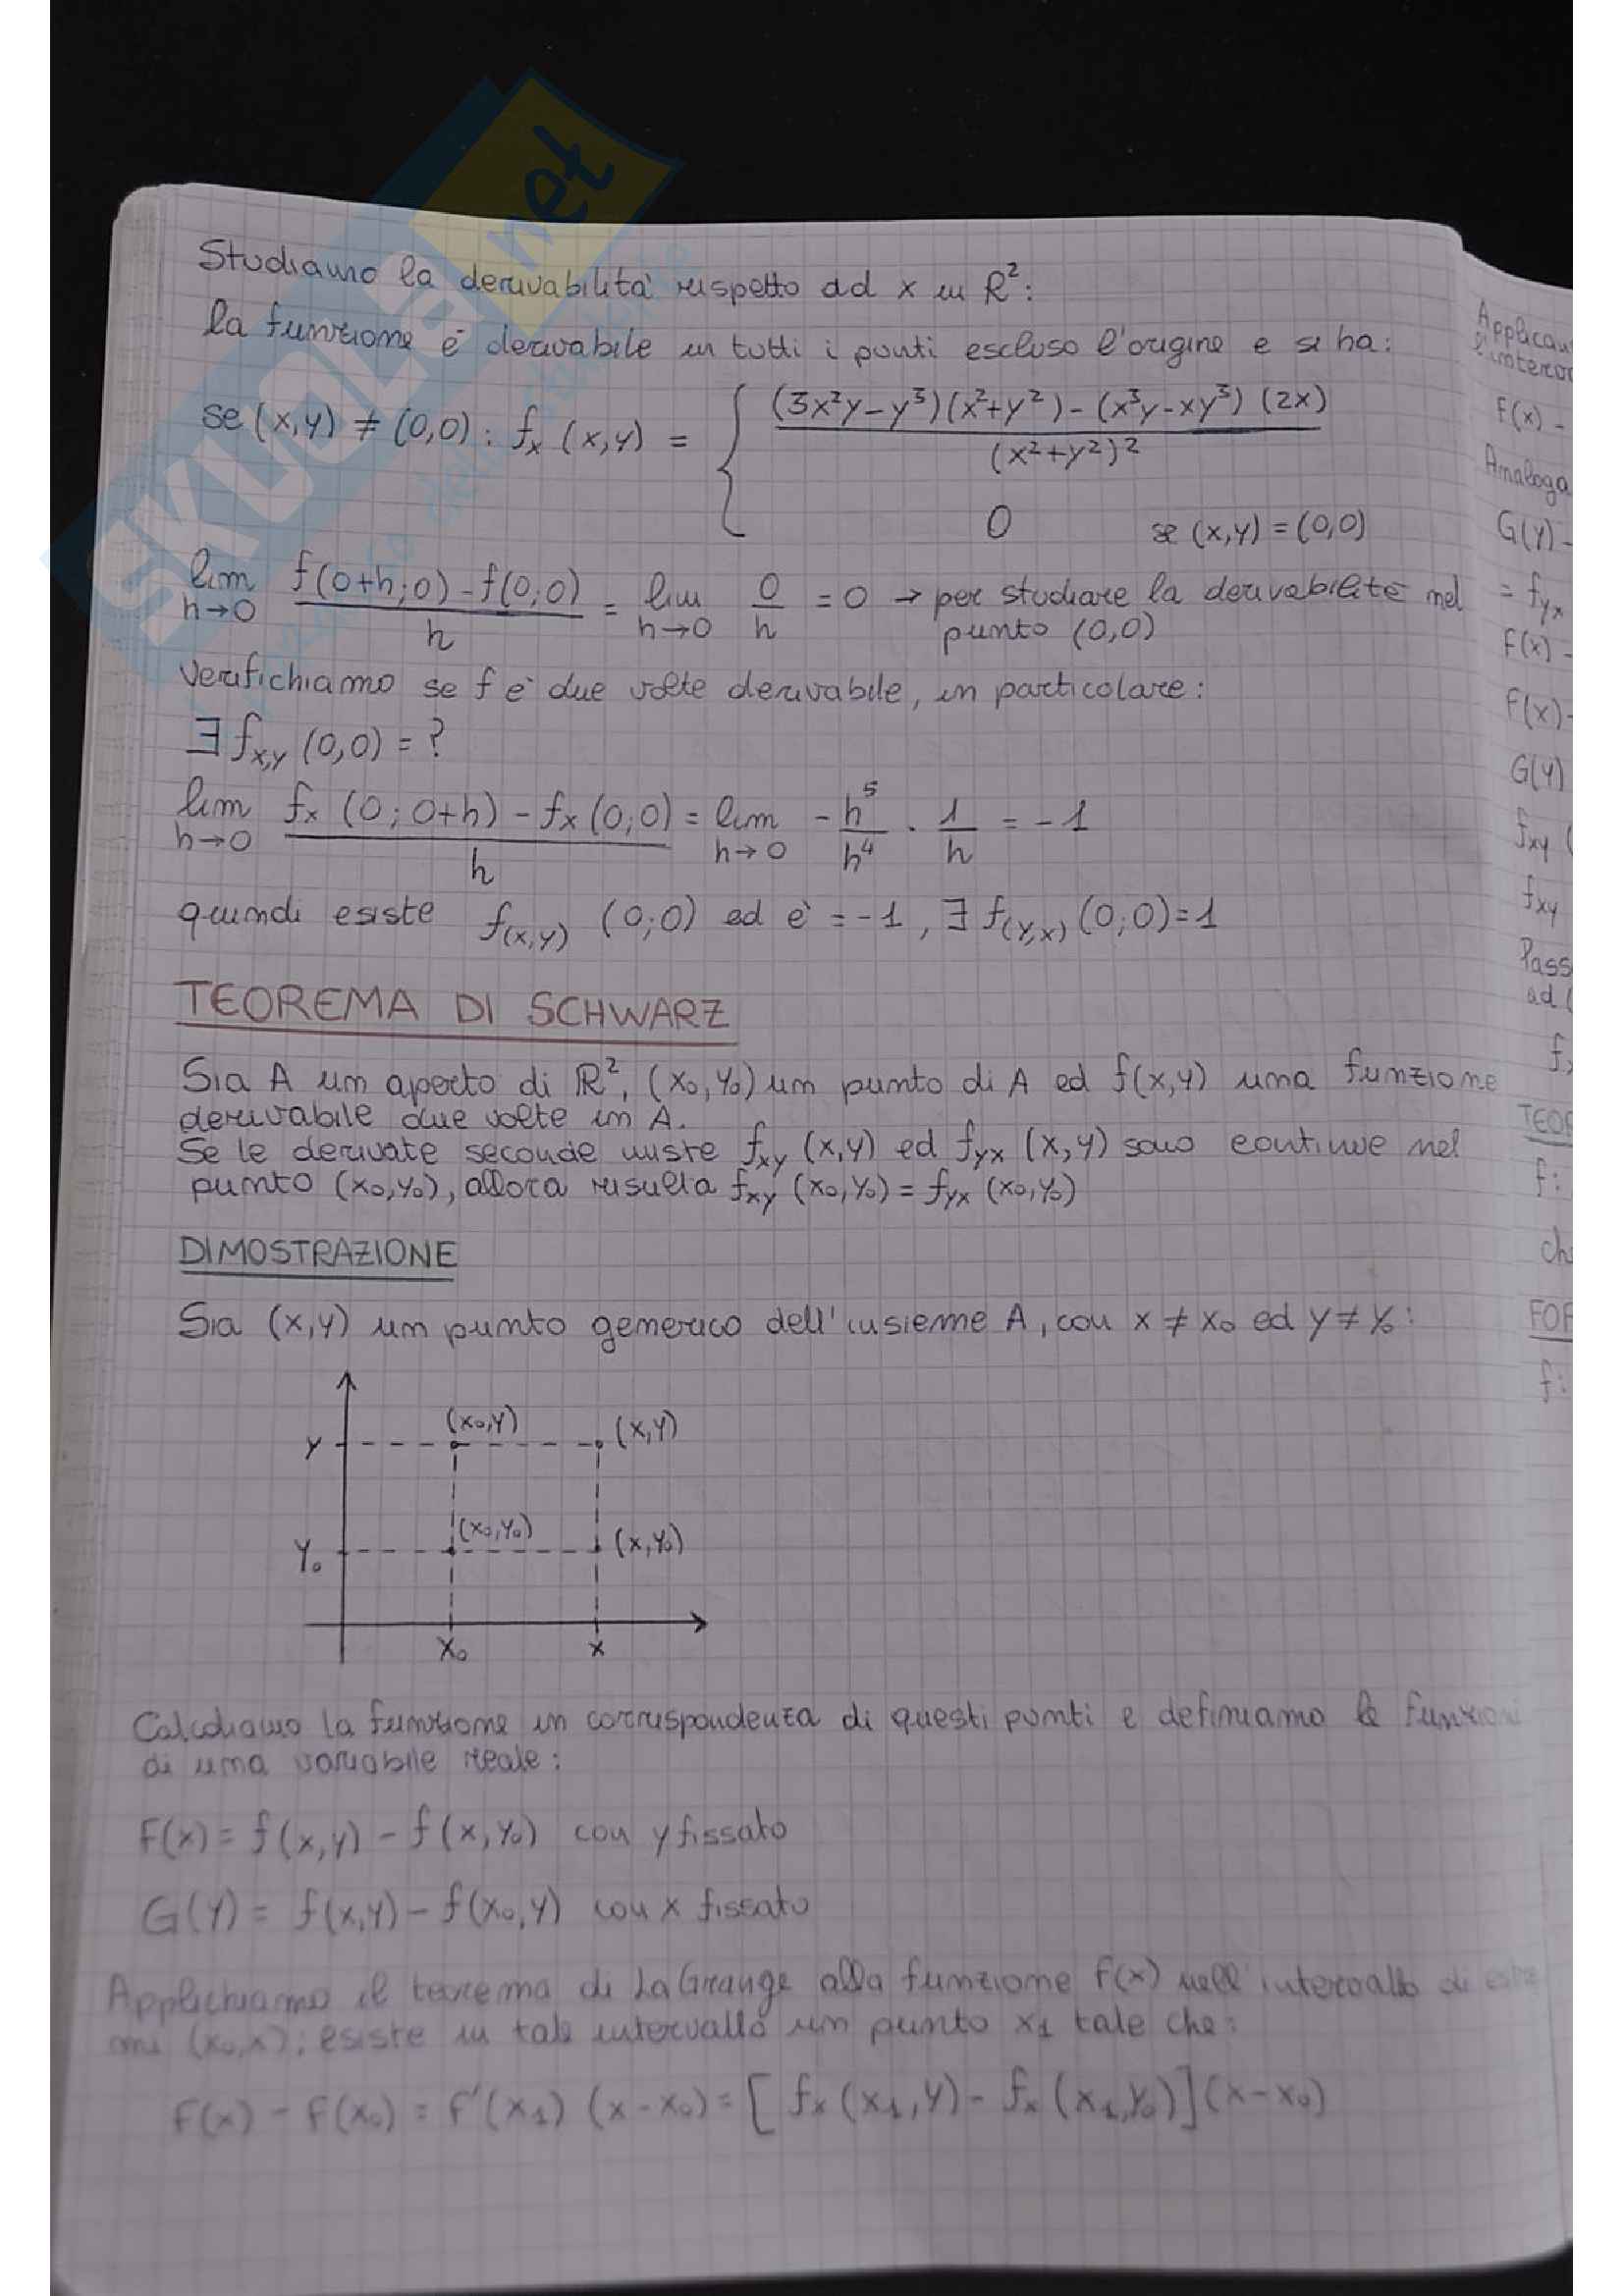 SKUOLA.net
Studiamo la derivabilità rispetto ad x in R²:
la funzione è derivabile in tutti i punti escluso l'origine e si ha:
se (x,y) ≠ (0,0) : fx (x,y) = { (3x²y-y³)(x²+y²) - (x³y-xy³) (2x) / (x²+y²)²
0 se (x,y) = (0,0)
lim h→0 f(0+h;0) - f(0;0) / h = lim h→0 0/h = 0 → per studiare la derivabilità nel
punto (0,0)
verifichiamo se f è due volte derivabile, in particolare:
∃ fx,y (0,0) = ?
lim h→0 fx (0; 0+h) - fx (0;0) / h = lim h→0 - h⁵/h⁴ · 1/h = -1
quindi esiste f(x,y) (0;0) ed è = -1, ∃ f(y,x) (0;0) = 1
TEOREMA DI SCHWARZ
Sia A un aperto di ℝ², (x₀,y₀) un punto di A ed f(x,y) una funzione
derivabile due volte in A.
Se le derivate seconde miste fxy (x,y) ed fyx (x,y) sono continue nel
punto (x₀,y₀), allora risulta fxy (x₀,y₀) = fyx (x₀,y₀)
DIMOSTRAZIONE
Sia (x,y) un punto generico dell'insieme A, con x ≠ x₀ ed y ≠ y₀:
(x₀,y) (x,y)
y
(x₀,y₀) (x,y₀)
y₀
x₀ x
Calcoliamo la funzione in corrispondenza di questi punti e definiamo le funzioni
di una variabile reale:
F(x) = f(x,y) - f(x,y₀) con y fissato
G(y) = f(x,y) - f(x₀,y) con x fissato
Applichiamo il teorema di LaGrange alla funzione F(x) nell'intervallo di estre
mi (x₀,x); esiste in tale intervallo un punto x₁ tale che:
F(x) - F(x₀) = F'(x₁) (x-x₀) = [ fx (x₁,y) - fx (x₁,y₀)] (x-x₀)
F(x) -
G(y) -
= fyx
F(x) -
F(x) -
G(y)
fxy (
fxy
ad (
f:
f: